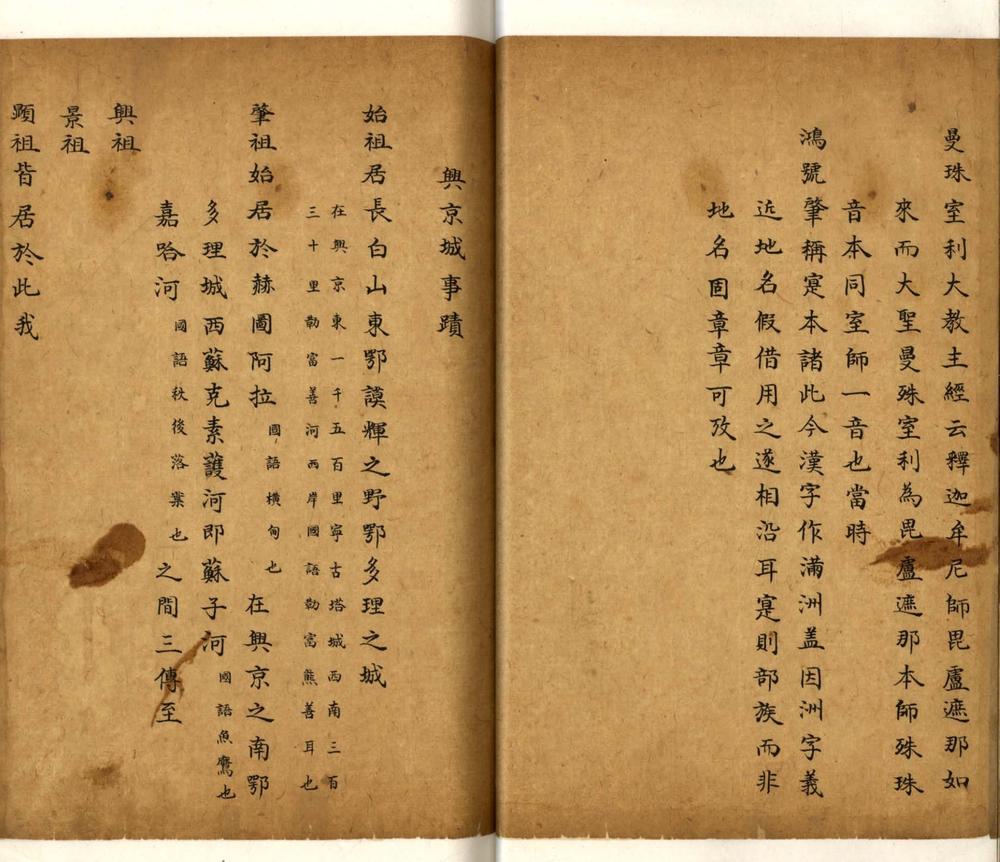 曼珠室利大教主經云釋迦牟尼師毘盧遮那如
來而大聖曼殊室利為毘盧遮那本師殊珠
音本同室師一音也當時
鴻號肇稱寔本諸此今漢字作滿洲盖因洲字義
近地名假借用之遂相沿耳寔則部族而非
地名固章章可攷也
興京城事蹟
始祖居長白山東鄂謨輝之野鄂多理之城
在興京東一千五百里寧古塔城西南三百
三十里勒富善河西岸國語勒富熊善耳也
肇祖始居於赫圖阿拉國語橫甸也在興京之南鄂
多理城西蘇克素護河即蘇子河國語魚鷹也
嘉哈河國語秋後落葉也之間三傳至
興祖
景祖
顯祖皆居於此我